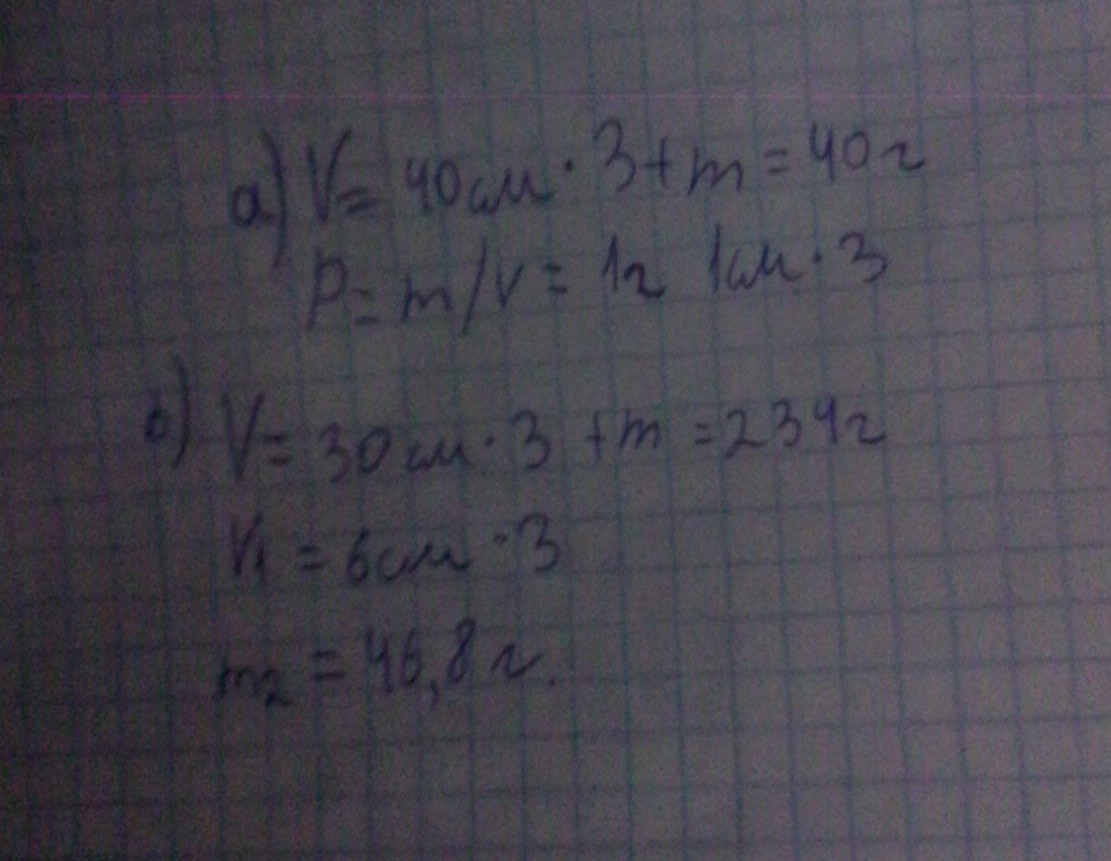 а) V= 40 см · 3 + m = 40 г
P = m/V = 1г 1см · 3
в) V = 30 см · 3 + m = 234 г
V1 = 6 см · 3
m2 = 46,8 г.